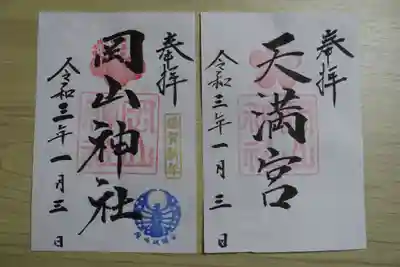 奉拝
岡山神社
令和三年一月三日
奉拝
天満宮
令和三年一月三日